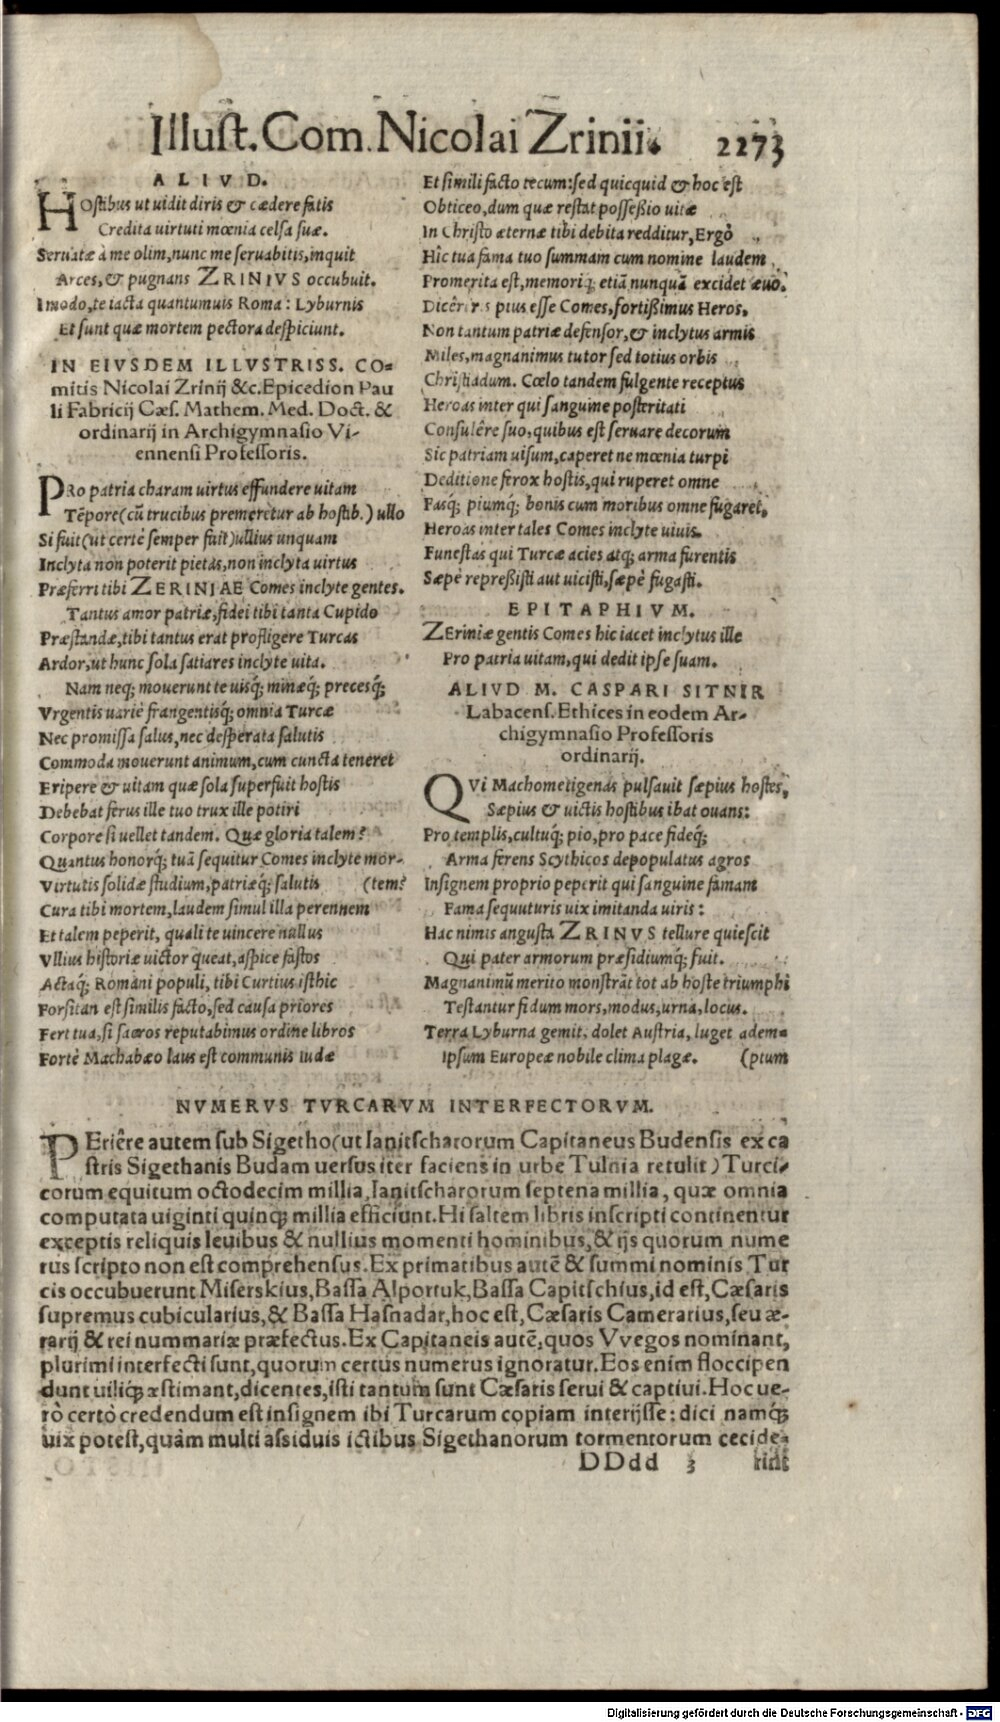 Illust. Com. Nicolai Zrinii. 2273
ALIVD.
HOstibus ut uidit diris & cædere fatis
Credita uirtuti mœnia celsa suæ.
Seruatæ à me olim, nunc me seruabitis, inquit
Arces, & pugnans ZRINIVS occubuit.
I modo, te iacta quantumuis Roma: Lyburnis
Et sunt quæ mortem pectora despiciunt.
IN EIVSDEM ILLVSTRISS. CO=
mitis Nicolai Zrinij &c. Epicedion Pau
li Fabricij Cæs. Mathem. Med. Doct. &
ordinarij in Archigymnasio Vi-
ennensi Professoris.
PRo patria charam uirtus effundere uitam
Tẽpore (cũ trucibus premeretur ab hostib.) ullo
Si fuit (ut certè semper fuit) ullius unquam
Inclyta non poterit pietas, non inclyta uirtus
Præferri tibi ZERINIAE Comes inclyte gentes.
Tantus amor patriæ, fidei tibi tanta Cupido
Præstandæ, tibi tantus erat profligere Turcas
Ardor, ut hunc sola satiares inclyte uita.
Nam neq; mouerunt te uisq́; minæq́; precesq́;
Vrgentis uariè frangentisq́; omnia Turcæ
Nec promissa salus, nec desperata salutis
Commoda mouerunt animum, cum cuncta teneret
Eripere & uitam quæ sola superfuit hostis
Debebat ferus ille tuo trux ille potiri
Corpore si uellet tandem. Quæ gloria talem?
Quantus honorq́; tuã sequitur Comes inclyte mor-
Virtutis solidæ studium, patriæq́; salutis (tem?
Cura tibi mortem, laudem simul illa perennem
Et talem peperit, quali te uincere nullus
Vllius historiæ uictor queat, aspice fastos
Actaq́; Romani populi, tibi Curtius isthic
Forsitan est similis facto, sed causa priores
Fert tua, si sacros reputabimus ordine libros
Fortè Machabæo laus est communis Iudæ
Et simili facto tecum: sed quicquid & hoc est
Obticeo, dum quæ restat possessio uitæ
In Christo æternæ tibi debita redditur, Ergò
Hîc tua fama tuo summam cum nomine laudem
Promerita est, memoriq; etiã nunquã excidet æuo.
pius esse Comes, fortißimus Heros,
Non tantum patriæ defensor, & inclytus armis
Miles, magnanimus tutor sed totius orbis
Christiadum. Cœlo tandem fulgente receptus
Heroas inter qui sanguine posteritati
Consulêre suo, quibus est seruare decorum
Sic patriam uisum, caperet ne mœnia turpi
Deditione ferox hostis, qui ruperet omne
Fasq́; piumq́; bonis cum moribus omne fugaret,
Heroas inter tales Comes inclyte uiuis.
Funestas qui Turcæ acies atq; arma furentis
Sæpè repreßisti aut uicisti, sæpè fugasti.
EPITAPHIVM.
ZEriniæ gentis Comes hic iacet inclytus ille
Pro patria uitam, qui dedit ipse suam.
ALIVD M. CASPARI SITNIR
Labacens. Ethices in eodem Ar-
chigymnasio Professoris
ordinarij.
QVi Machometigenas pulsauit sæpius hostes,
Sæpius & uictis hostibus ibat ouans:
Pro templis, cultuq́; pio, pro pace fideq́;
Arma ferens Scythicos depopulatus agros
Insignem proprio peperit qui sanguine famam
Fama sequuturis uix imitanda uiris:
Hac nimis angusta ZRINVS tellure quiescit
Qui pater armorum præsidiumq́; fuit.
Magnanimũ merito monstrãt tot ab hoste triumphi
Testantur fidum mors, modus, urna, locus.
Terra Lyburna gemit, dolet Austria, luget adem=
Ipsum Europeæ nobile clima plagæ. (ptum
NVMERVS TVRCARVM INTERFECTORVM.
PEriêre autem sub Sigetho (ut Ianitscharorum Capitaneus Budensis ex ca
stris Sigethanis Budam uersus iter faciens in urbe Tulnia retulit) Turci-
corum equitum octodecim millia, Ianitscharorum septena millia, quæ omnia
computata uiginti quinq; millia efficiunt. Hi saltem libris inscripti continentur
exceptis reliquis leuibus & nullius momenti hominibus, & ijs quorum nume
rus scripto non est comprehensus. Ex primatibus autẽ & summi nominis Tur
cis occubuerunt Miserskius, Bassa Alportuk, Bassa Capitschius, id est, Cæsaris
supremus cubicularius, & Bassa Hasnadar, hoc est, Cæsaris Camerarius, seu æ-
rarij & rei nummariæ præfectus. Ex Capitaneis autẽ, quos Vvegos nominant,
plurimi interfecti sunt, quorum certus numerus ignoratur. Eos enim floccipen
dunt uiliq́; æstimant, dicentes, isti tantum sunt Cæsaris serui & captiui. Hoc ue-
rò certò credendum est insignem ibi Turcarum copiam interijsse: dici namq́;
uix potest, quàm multi assiduis ictibus Sigethanorum tormentorum cecide-
DDdd 3 rint
Digitalisierung gefördert durch die Deutsche Forschungsgemeinschaft - DFG